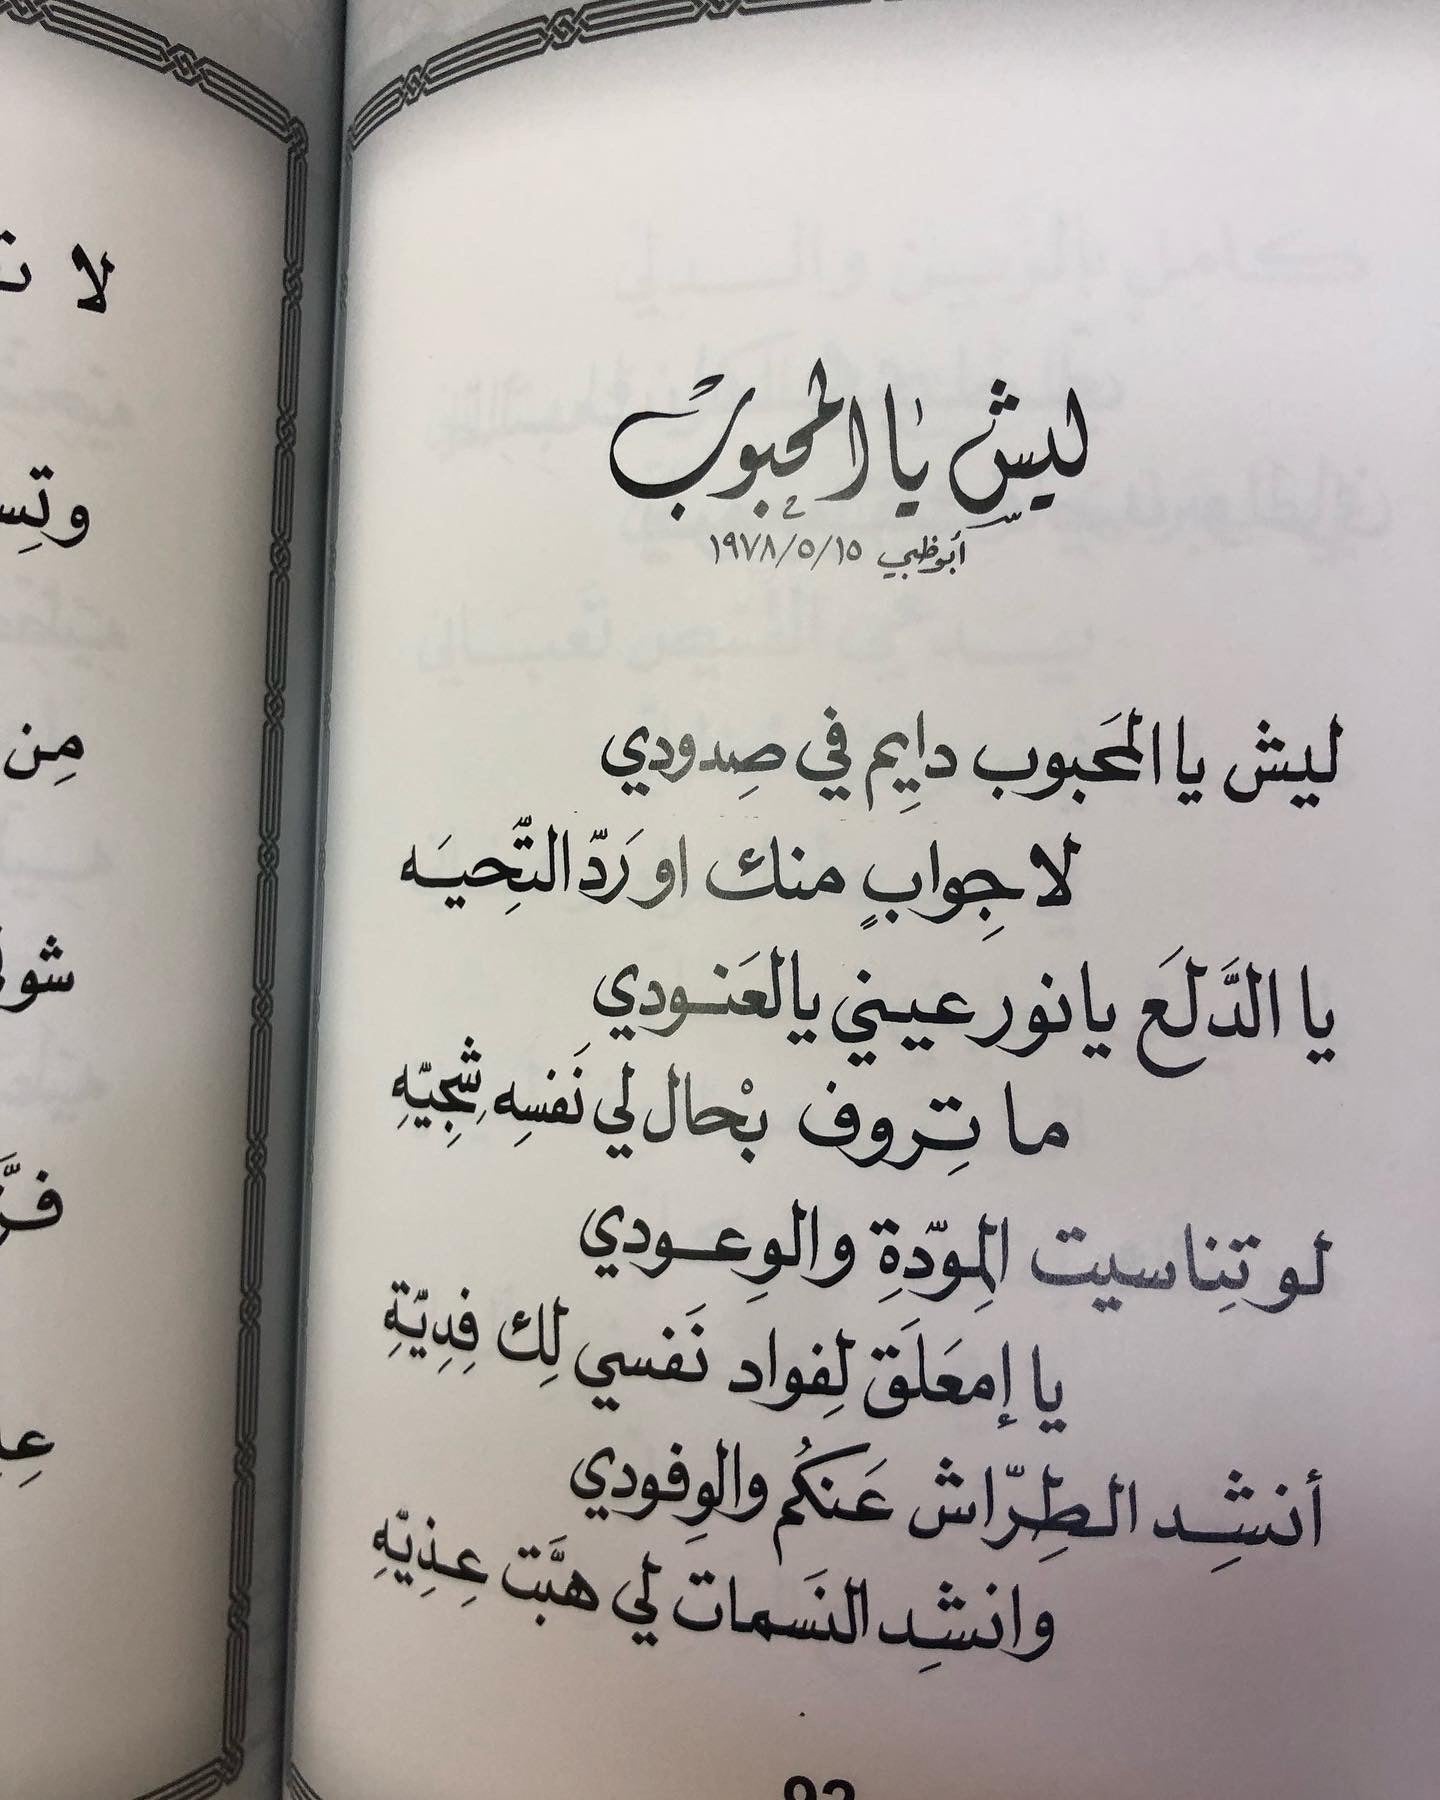 ليش يا المحبوب
أبوظبي ١٩٧٨/٥/١٥
ليش يا المحَبوب دايِم في صِدودي
لا جِوابٍ منك او رَدّ التّحِيَه
يا الدَّلَع يا نور عيني يالعَنودي
ما تِروف بْحال لي نَفسِه شِجِيّهِ
لو تِناسيت المِودّةِ والوِعودي
يا إمعَلَق لِفواد نَفسي لِك فِدِيّةِ
أنشِد الطِرّاش عَنكُم والوِفودي
وانشِد النَسمات لي هبَّت عِذِيّهِ
لا
وتِس
مِن
شو
فر
عِ